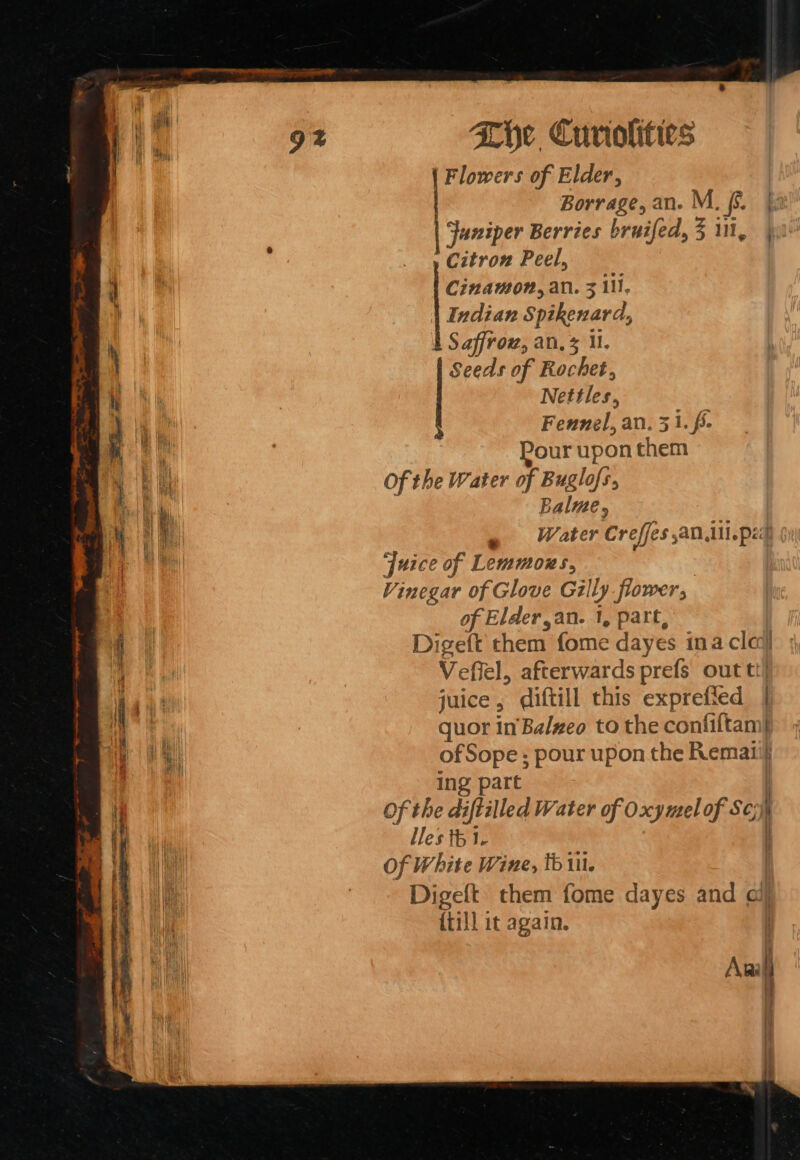 92 The Curiosities
Flowers of Elder,
Borrage, an. M. ß.
Juniper Berries bruiſed, ℥ iii,
Citron Peel,
Cinamon, an. ʒ iii.
Indian Spikenard,
Saffron, an. ʒ ii.
Seeds of Rochet,
Nettles,
Fennel, an. ʒ i. ß.
Pour upon them
Of the Water of Bugloſs,
Balme,
Water Creſſes, an, iii.
Juice of Lemmons,
Vinegar of Glove Gilly flower,
of Elder, an. i, part,
Digeſt them ſome dayes in a
Veſſel, afterwards preſs out
juice, diſtill this expreſſed
quor in Balneo to the
of Sope; pour upon the
ing part
Of the diſtilled Water of Oxymel of
lles ℔ i.
Of White Wine, ℔ iii.
Digeſt them ſome dayes and
ſtill it again.